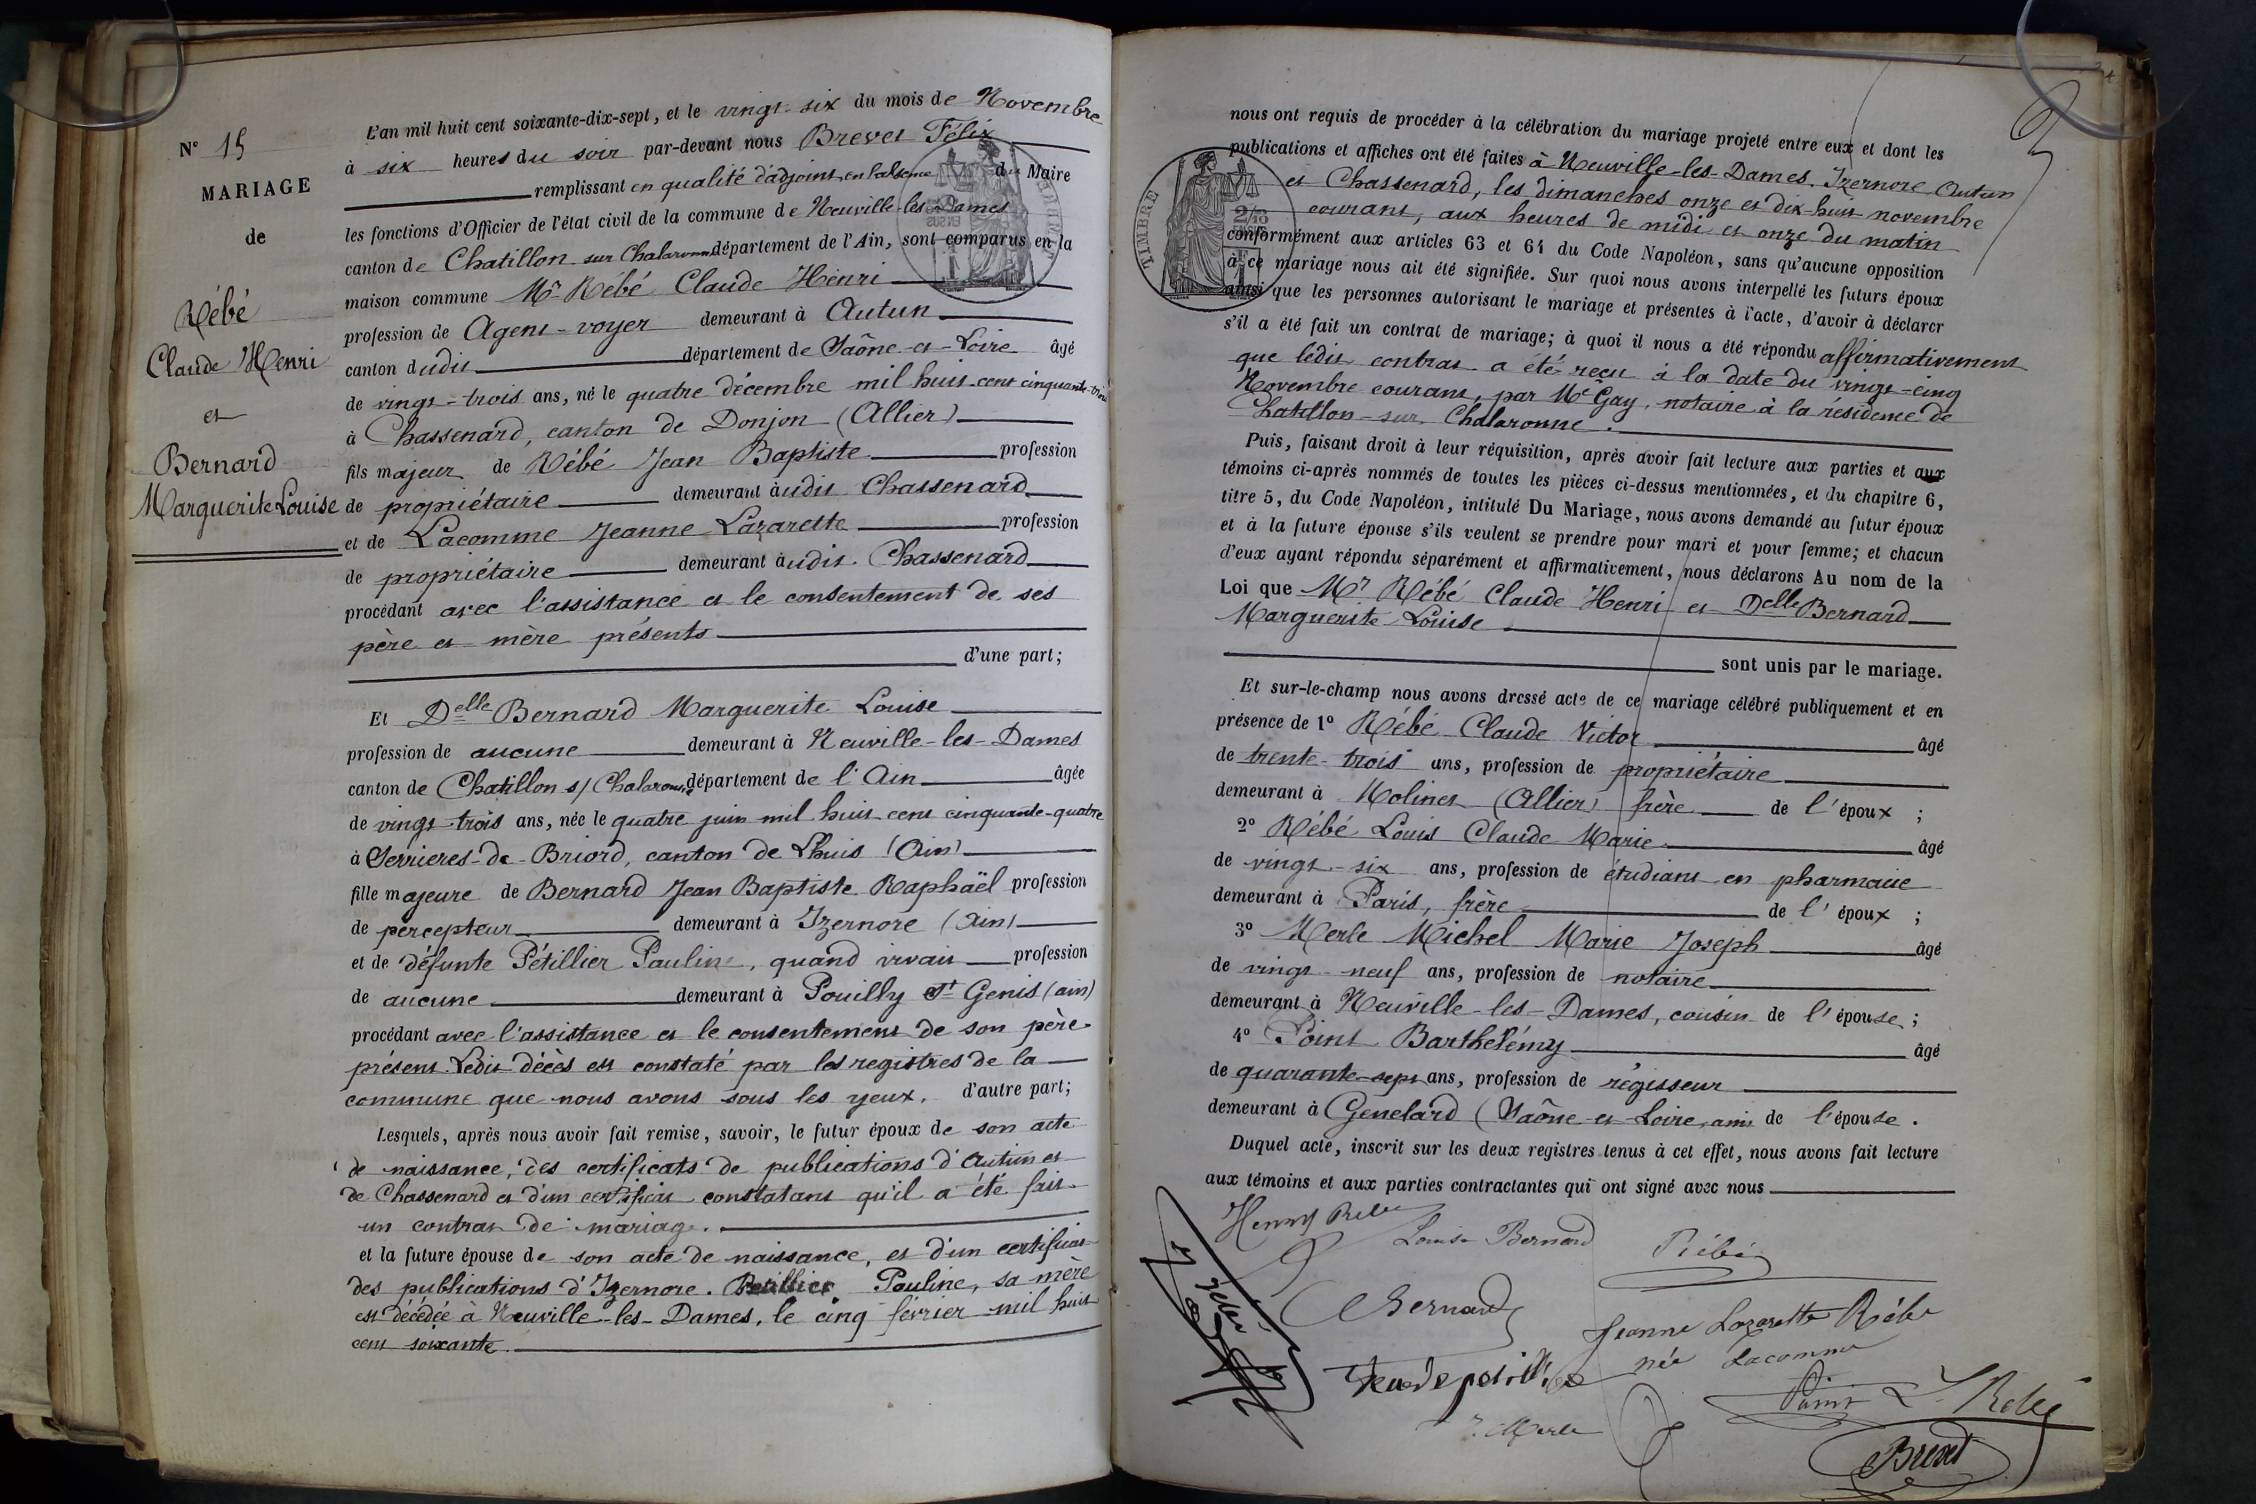 Nº 15
MARIAGE
de
Rébé
Claude Henri
et
Bernard
Marguerite Louise
L'an mil huit cent soixante-dix-sept, et le vingt-six du mois de Novembre
à six heures du soir par-devant nous Brevet Félix
remplissant en qualité d'adjoint, en l'absence du Maire
les fonctions d'Officier de l'état civil de la commune de Neuville-les-Dames
canton de Chatillon sur Chalaronne département de l'Ain, sont comparus en la
maison commune Mr Rébé Claude Henri
profession de Agent-voyer demeurant à Autun
canton dudit département de Saône-et-Loire âgé
de vingt-trois ans, né le quatre décembre mil huit cent cinquante-trois
à Chassenard, canton de Donjon (Allier)
fils majeur de Rébé Jean Baptiste profession
de propriétaire demeurant àudit Chassenard
et de Lacomme Jeanne Lazarette profession
de propriétaire demeurant àudit Chassenard
procédant avec l'assistance et le consentement de ses
père et mère présents
d'une part;
Et Delle Bernard Marguerite Louise
profession de aucune demeurant à Neuville-les-Dames
canton de Chatillon s/ Chalaronne département de l'Ain âgée
de vingt-trois ans, née le quatre juin mil huit cent cinquante-quatre
à Serrieres-de-Briord, canton de Lhuis (Ain)
fille majeure de Bernard Jean Baptiste Raphaël profession
de percepteur demeurant à Izernore (Ain)
et de défunte Pétillier Pauline, quand vivait profession
de aucune demeurant à Pouilly St Genis (ain)
procédant avec l'assistance et le consentement de son père
présent. Ledit décès est constaté par les registres de la
commune que nous avons sous les yeux. d'autre part;
Lesquels, après nous avoir fait remise, savoir, le futur époux de son acte
de naissance, des certificats de publications d'Autun et
de Chassenard et d'un certificat constatant qu'il a été fait
un contrat de mariage.
et la future épouse de son acte de naissance, et d'un certificat
des publications d'Izernore. Petillier Pauline, sa mère
est décédée à Neuville-les-Dames, le cinq février mil huit
cent soixante.
nous ont requis de procéder à la célébration du mariage projeté entre eux et dont les
publications et affiches ont été faites à Neuville-les-Dames, Izernore, Autun
et Chassenard, les dimanches onze et dix-huit novembre
courant, aux heures de midi et onze du matin
conformément aux articles 63 et 64 du Code Napoléon, sans qu'aucune opposition
à ce mariage nous ait été signifiée. Sur quoi nous avons interpellé les futurs époux
ainsi que les personnes autorisant le mariage et présentes à l'acte, d'avoir à déclarer
s'il a été fait un contrat de mariage; à quoi il nous a été répondu affirmativement
que ledit contrat a été reçu à la date du vingt-cinq
Novembre courant, par Me Gay, notaire à la résidence de
Chatillon-sur-Chalaronne.
Puis, faisant droit à leur réquisition, après avoir fait lecture aux parties et aux
témoins ci-après nommés de toutes les pièces ci-dessus mentionnées, et du chapitre 6,
titre 5, du Code Napoléon, intitulé Du Mariage, nous avons demandé au futur époux
et à la future épouse s'ils veulent se prendre pour mari et pour femme; et chacun
d'eux ayant répondu séparément et affirmativement, nous déclarons Au nom de la
Loi que Mr Rébé Claude Henri et Delle Bernard
Marguerite-Louise
sont unis par le mariage.
Et sur-le-champ nous avons dressé acte de ce mariage célébré publiquement et en
présence de 1º Rébé Claude Victor âgé
de trente-trois ans, profession de propriétaire
demeurant à Molinet (Allier) frère de l'époux ;
2º Rébé Louis Claude Marie âgé
de vingt-six ans, profession de étudiant en pharmacie
demeurant à Paris, frère de l'époux ;
3º Merle Michel Marie Joseph âgé
de vingt-neuf ans, profession de notaire
demeurant à Neuville-les-Dames, cousin de l'épouse ;
4º Point Barthélémy âgé
de quarante-sept ans, profession de régisseur
demeurant à Genelard (Saône-et-Loire, ami de l'épouse.
Duquel acte, inscrit sur les deux registres tenus à cet effet, nous avons fait lecture
aux témoins et aux parties contractantes qui ont signé avec nous
Henry Rebe
Louise Bernard
Rébé
Bernard
Jeanne Lazarette Rébé
née Lacomme
Point
L. Rebé
Merle
Brevet
TIMBRE